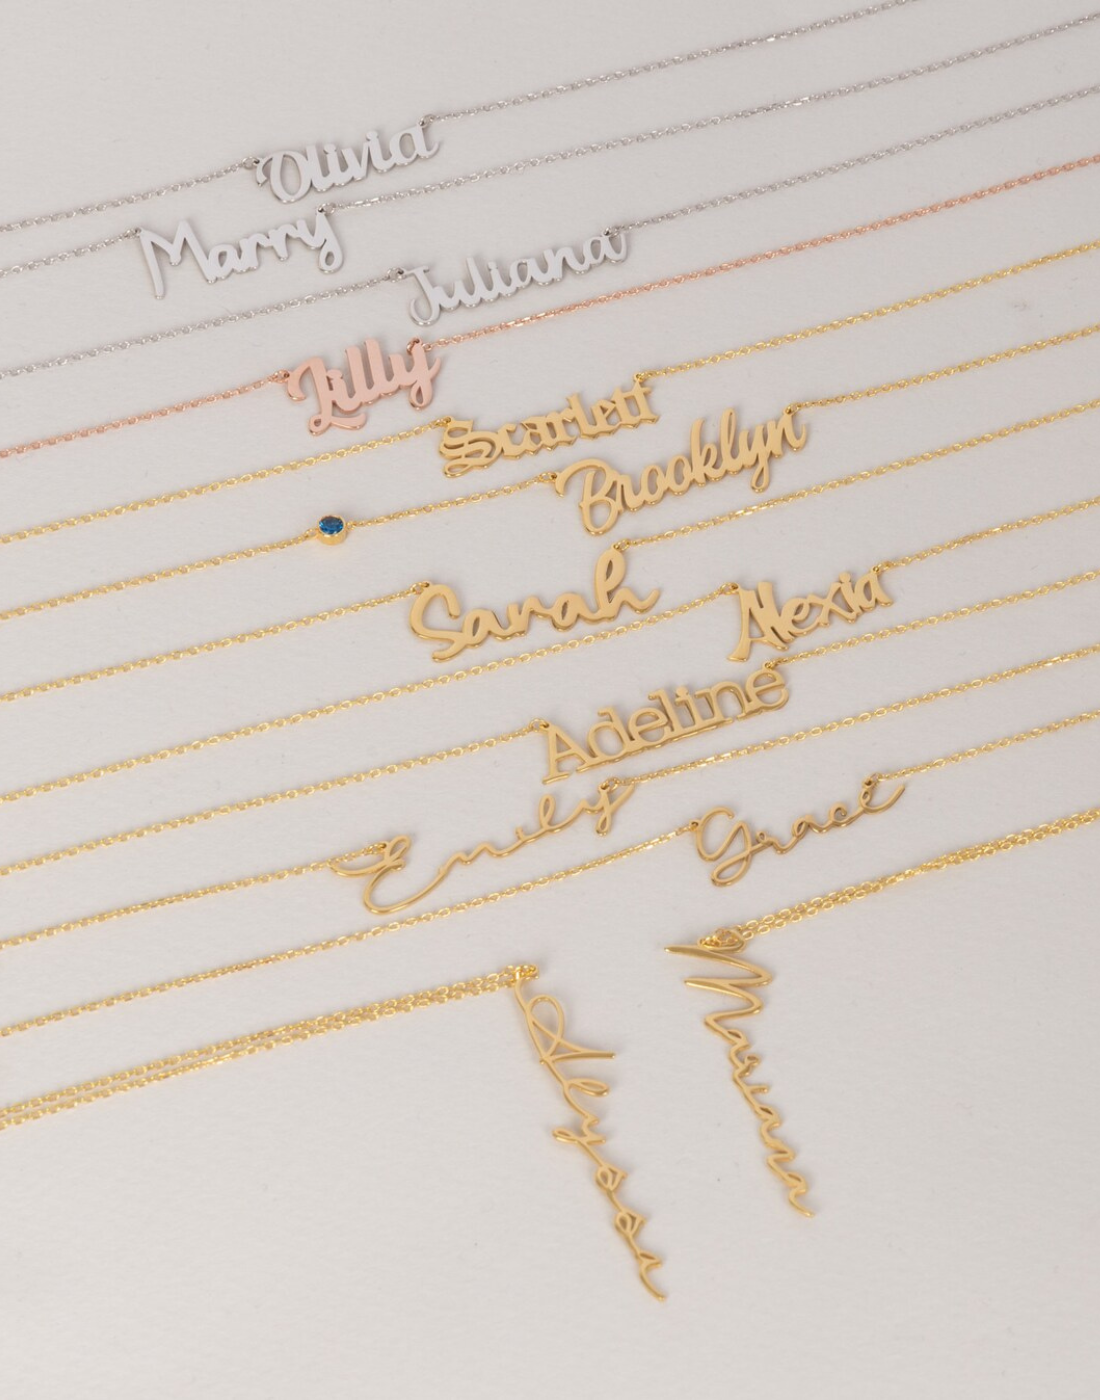 Olivia
Marry
Juliana
Lilly
Scarlett
Brooklyn
Sarah
Alexia
Adeline
Emily
Grace
Mariana
Alyssa